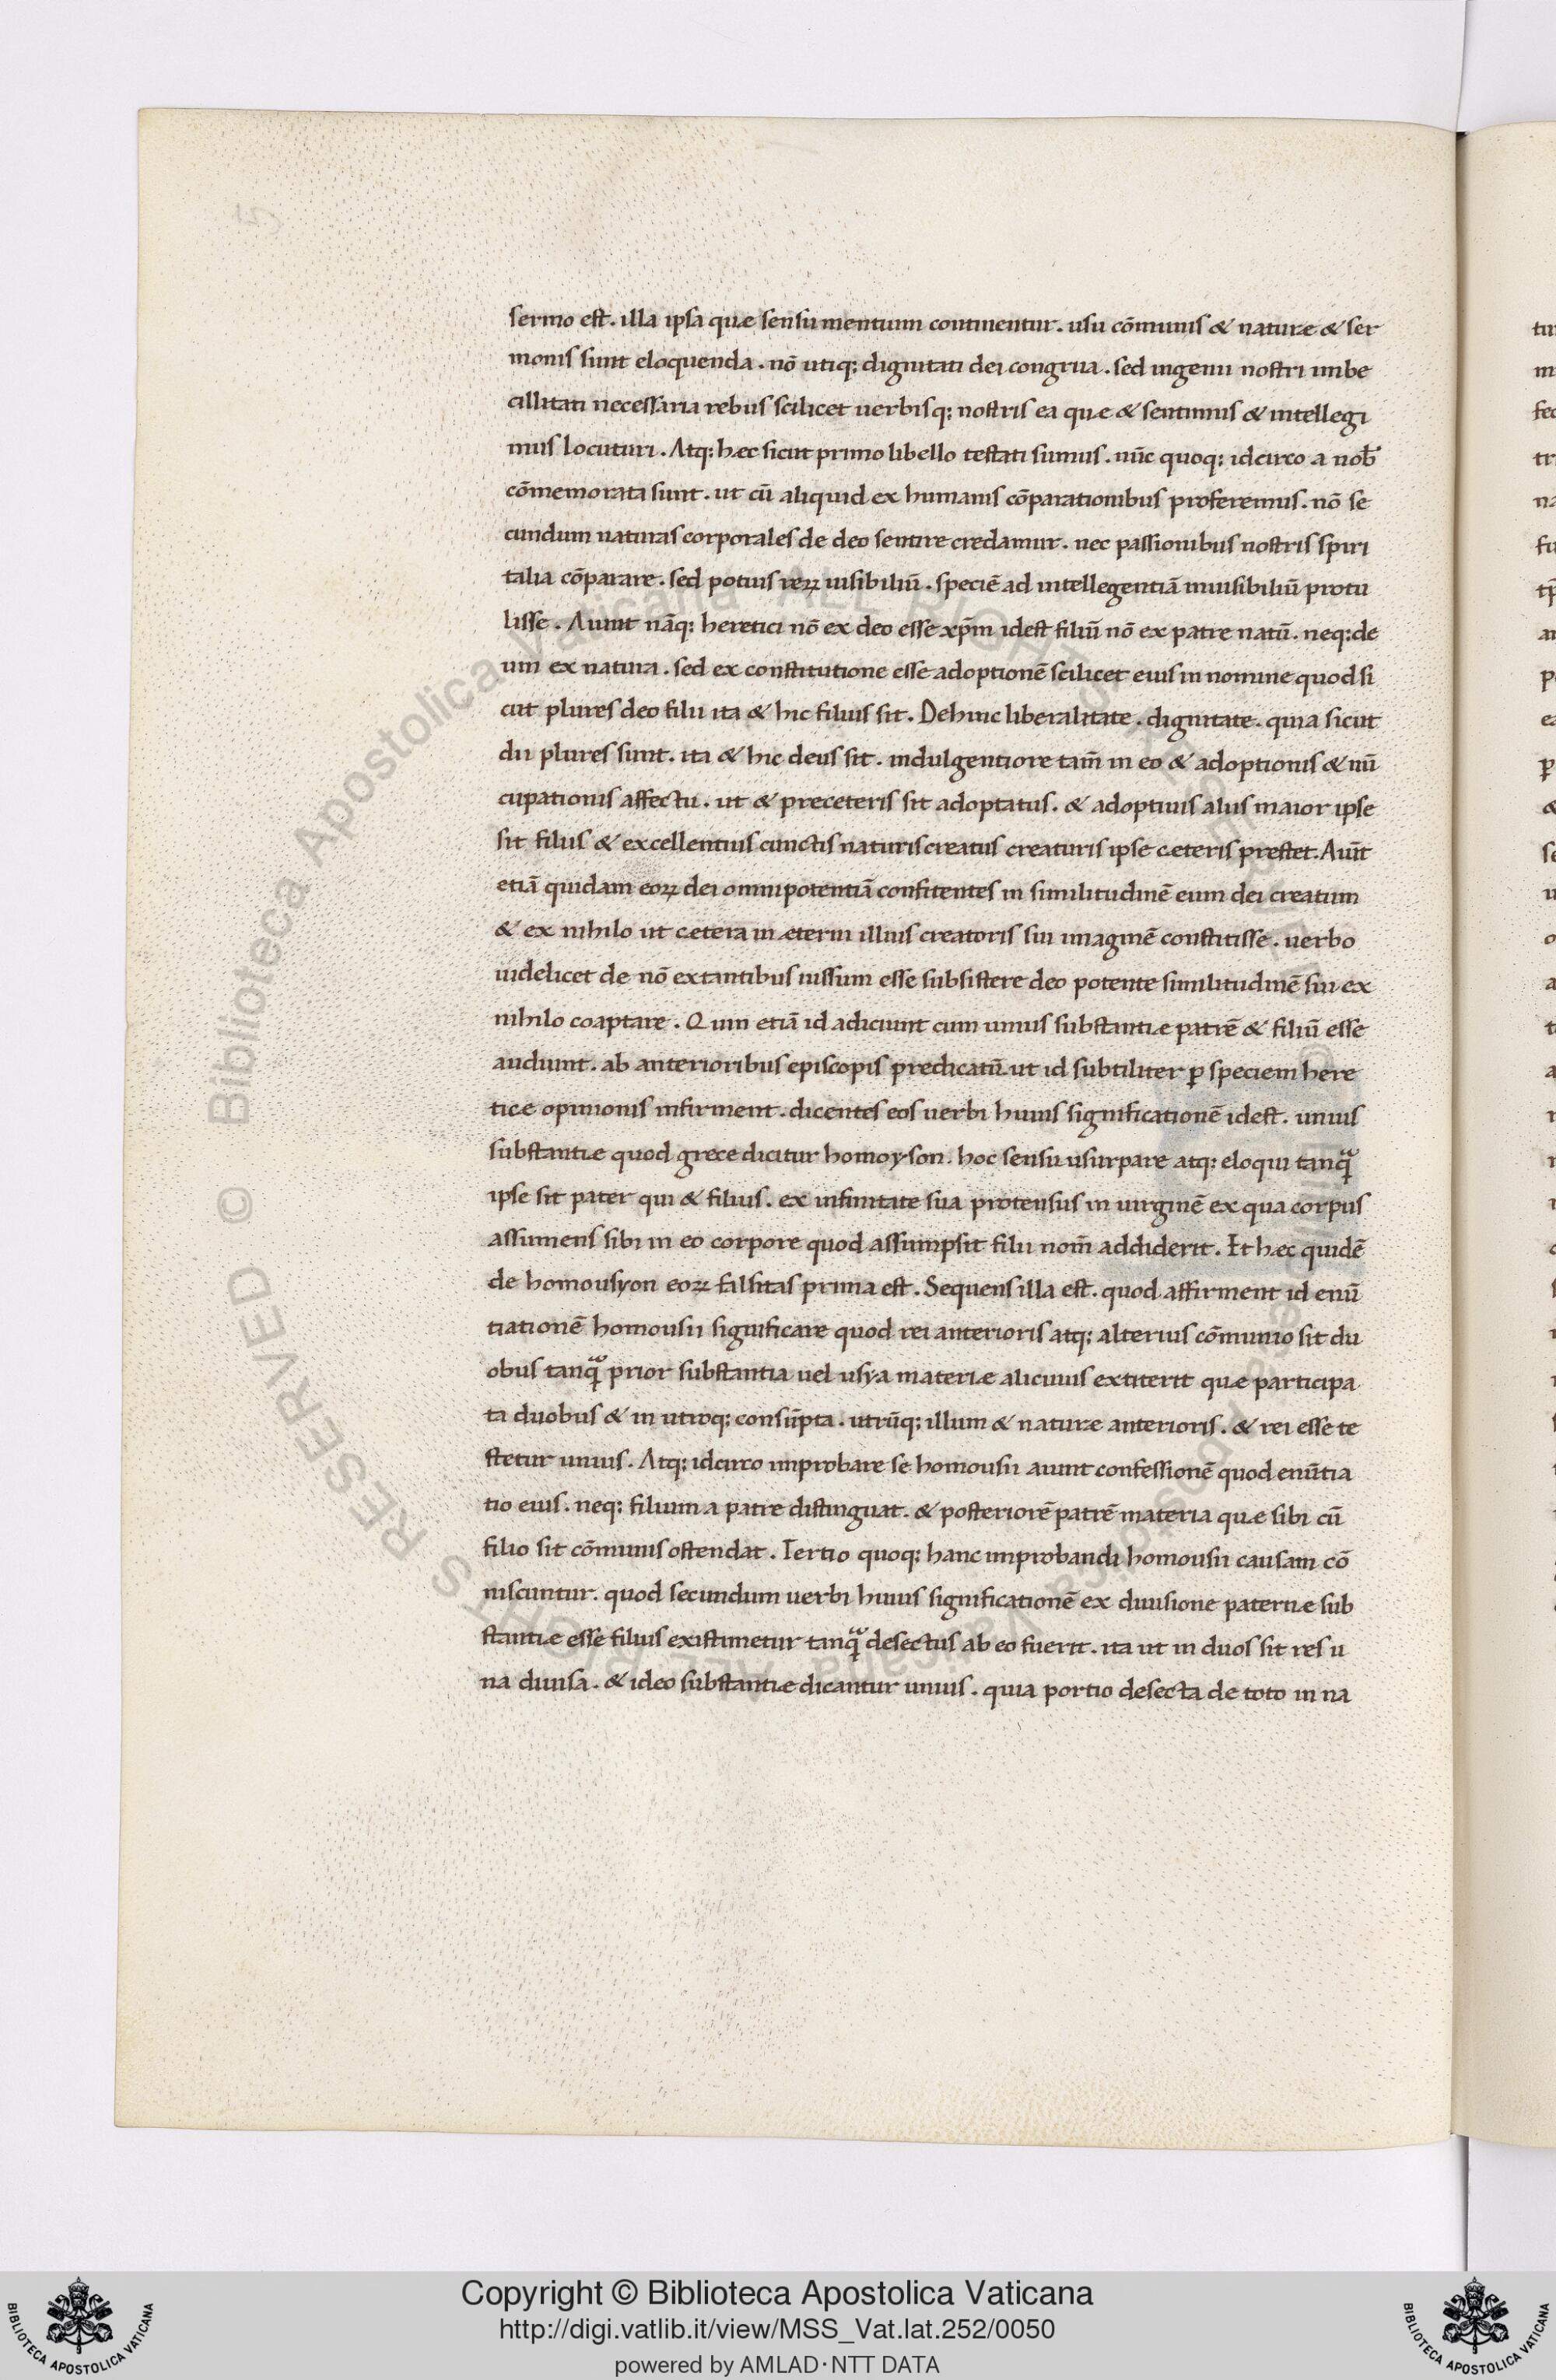 sermo est. illa ipsa quæ sensu mentium continentur. usu cōmunis & naturæ & ser
monis sunt eloquenda. nō utiq; dignitati dei congrua. sed ingenii nostri imbe
cillitati necessaria rebus scilicet uerbisq; nostris ea quæ & sentimus & intellegi
mus locuturi. Atq; hæc sicut primo libello testati sumus. nūc quoq; idcirco a nob̄
cōmemorata sunt. ut cū aliquid ex humanis cōparationibus proferemus. nō se
cundum naturas corporales de deo sentire credamur. nec passionibus nostris spiri
talia cōparare. sed potius reꝝ uisibiliū. speciē ad intellegentiā inuisibiliū protu
lisse. Aiunt nāq; heretici nō ex deo esse xp̄m idest filiū nō ex patre natū. neq; de
um ex natura. sed ex constitutione esse adoptionē scilicet eius in nomine quod si
cut plures deo filii ita & hic filius sit. Dehinc liberalitate. dignitate. quia sicut
dii plures sunt. ita & hic deus sit. indulgentiore tam̄ in eo & adoptionis & nū
cupationis affectu. ut & preceteris sit adoptatus. & adoptiuis aliis maior ipse
sit filius & excellentius cunctis naturis creatus creaturis ipse cæteris prestet. Aiūt
etiā quidam eoꝝ dei omnipotentiā confitentes in similitudinē eum dei creatum
& ex nihilo ut cætera in æterni illius creatoris sui imaginē constitisse. uerbo
uidelicet de nō extantibus iussum esse subsistere deo potente similitudinē sui ex
nihilo coaptare. Quin etiā id adiciunt cum unius substantiæ patrē & filiū esse
audiunt. ab anterioribus episcopis predicatū. ut id subtiliter ꝑ speciem here
ticæ opinionis infirment. dicentes eos uerbi huius significationē idest. unius
substantiæ quod grece dicitur homoyson. hoc sensu usurpare atq; eloqui tanqͣ
ipse sit pater qui & filius. ex infinitate sua protensus in uirginē ex qua corpus
assumens sibi in eo corpore quod assumpsit filii nom̄ addiderit. Et hæc quidē
de homousyon eoꝝ falsitas prima est. Sequens illa est. quod affirment id enū
tiationē homousii significare quod rei anterioris atq; alterius cōmunio sit du
obus tanqͣ prior substantia uel usya materiæ alicuius extiterit quæ participa
ta duobus & in utroq; consūpta. utrūq; illum & naturæ anterioris. & rei esse te
stetur unius. Atq; idcirco improbare se homousii aiunt confessionē quod enūtia
tio eius. neq; filium a patre distinguat. & posteriorē patrē materia quæ sibi cū
filio sit cōmunis ostendat. Tertio quoq; hanc improbandi homousii causam cō
niscuntur. quod secundum uerbi huius significationē ex diuisione paternæ sub
stantiæ esse filius existimetur tanqͣ desectus ab eo fuerit. ita ut in duos sit res u
na diuisa. & ideo substantiæ dicantur unius. quia portio desecta de toto in na
Copyright © Biblioteca Apostolica Vaticana
http://digi.vatlib.it/view/MSS_Vat.lat.252/0050
powered by AMLAD·NTT DATA
BIBLIOTECA APOSTOLICA VATICANA
BIBLIOTECA APOSTOLICA VATICANA